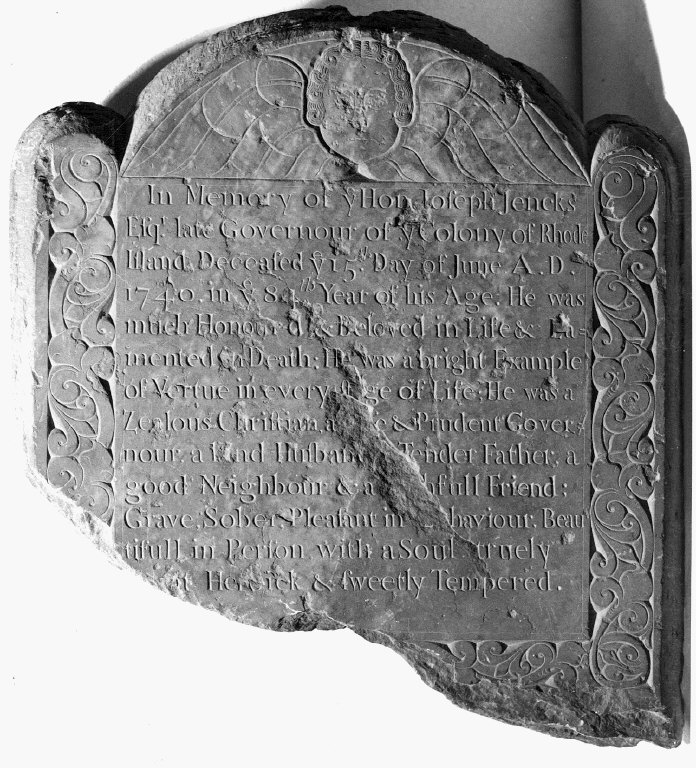 In Memory of yͤ Honͬ Joseph Jencks
Eſqͬ late Governour of yͤ Colony of Rhode
Iſland. Deceaſed yͤ 15ͭͪ Day of June A.D.
1740. in yͤ 84ͭͪ Year of his Age. He was
much Honour'd & Beloved in Life & La-
mented in Death: He was a bright Example
of Vertue in every Stage of Life; He was a
Zealous Chriſtian, a & Prudent Gover-
nour; a Kind Huſband Tender Father; a
good Neighbour & a Friend;
Grave, Sober, Pleaſant in Behaviour; Beau
tifull in Perſon with a Soul truely
Heroick & ſweetly Tempered.